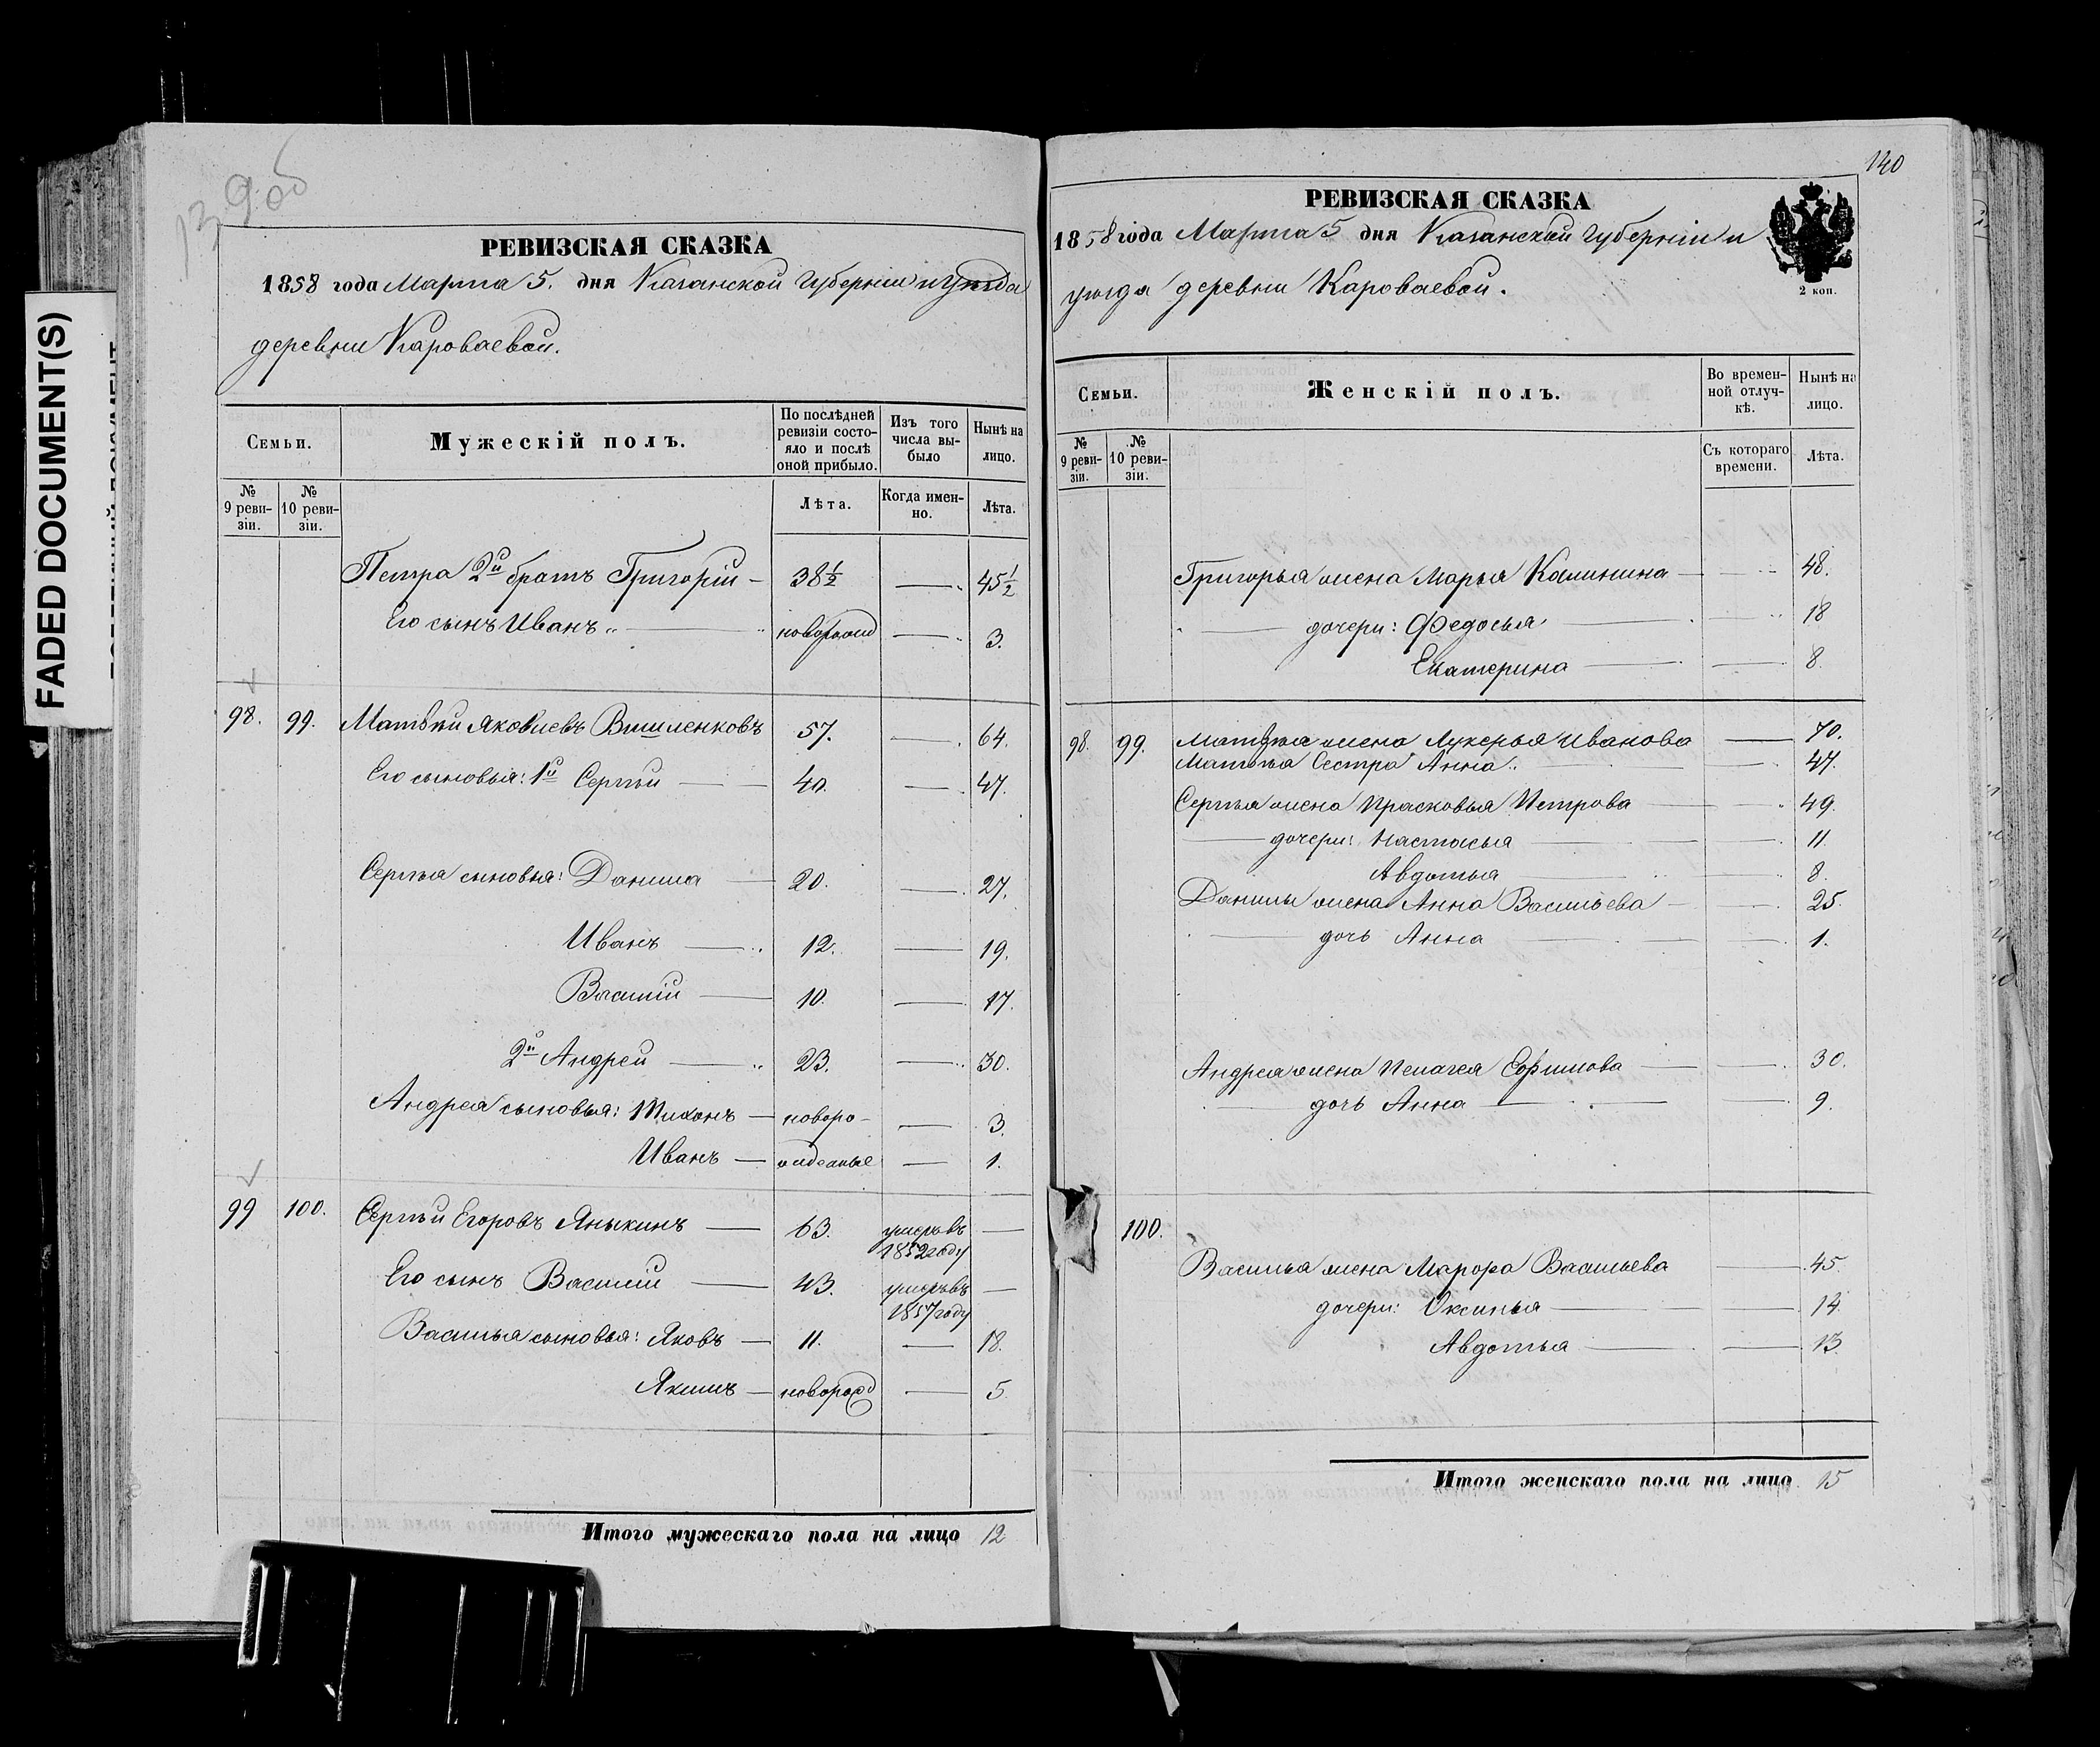 139 об
РЕВИЗСКАЯ СКАЗКА
1858 года Марта 5. дня Казанской Губерніи и уѣзда
деревни Кароваевой.
Семьи.
Мужескій полъ.
По послѣдней ревизіи состояло и послѣ оной прибыло.
Изъ того числа выбыло
Нынѣ на лицо.
№ 9 ревизіи.
№ 10 ревизіи.
Лѣта.
Когда именно.
Лѣта.
Петра 2й братъ Григорій 38½ — 45½
Его сынъ Иванъ новорожд — 3.
98. 99. Матвѣй Яковлевъ 57. — 64.
Его сыновья: 1й Сергѣй 40. — 47.
Сергѣя сыновья: Данила 20. — 27.
Иванъ 12. — 19.
Василій 10. — 17.
2й Андрей 23. — 30.
Андрея сыновья: Тихонъ новоро- — 3.
Иванъ жденные — 1.
99 100. Сергѣй Егоровъ Яныкинъ 63. умеръ въ 1852 году —
Его сынъ Василій 43. умеръ въ 1857 году —
Василья сыновья: Яковъ 11. — 18.
Якимъ новорожд — 5.
Итого мужескаго пола на лицо 12
140
РЕВИЗСКАЯ СКАЗКА
1858 года Марта 5 дня Казанской Губерніи и
уѣзда деревни Кароваевой.
2 коп.
Семьи.
Женскій полъ.
Во временной отлучкѣ.
Нынѣ на лицо.
№ 9 ревизіи.
№ 10 ревизіи.
Съ котораго времени.
Лѣта.
Григорья жена Марья Калинина — 48.
дочери: Федосья — 18
Екатерина — 8.
98. 99. Матвѣя жена Лукерья Иванова — 70.
Матвѣя Сестра Анна — 47.
Сергѣя жена Прасковья Петрова — 49.
дочери: Настасья — 11.
Авдотья — 8.
Данилы жена Анна Васильева — 25.
дочь Анна — 1.
Андрея жена Пелагея Ефимова — 30.
дочь Анна — 9.
100.
Василья жена Марфа Васильева — 45.
дочери: Оксинья — 14.
Авдотья — 13.
Итого женскаго пола на лицо 15
FADED DOCUMENT(S)